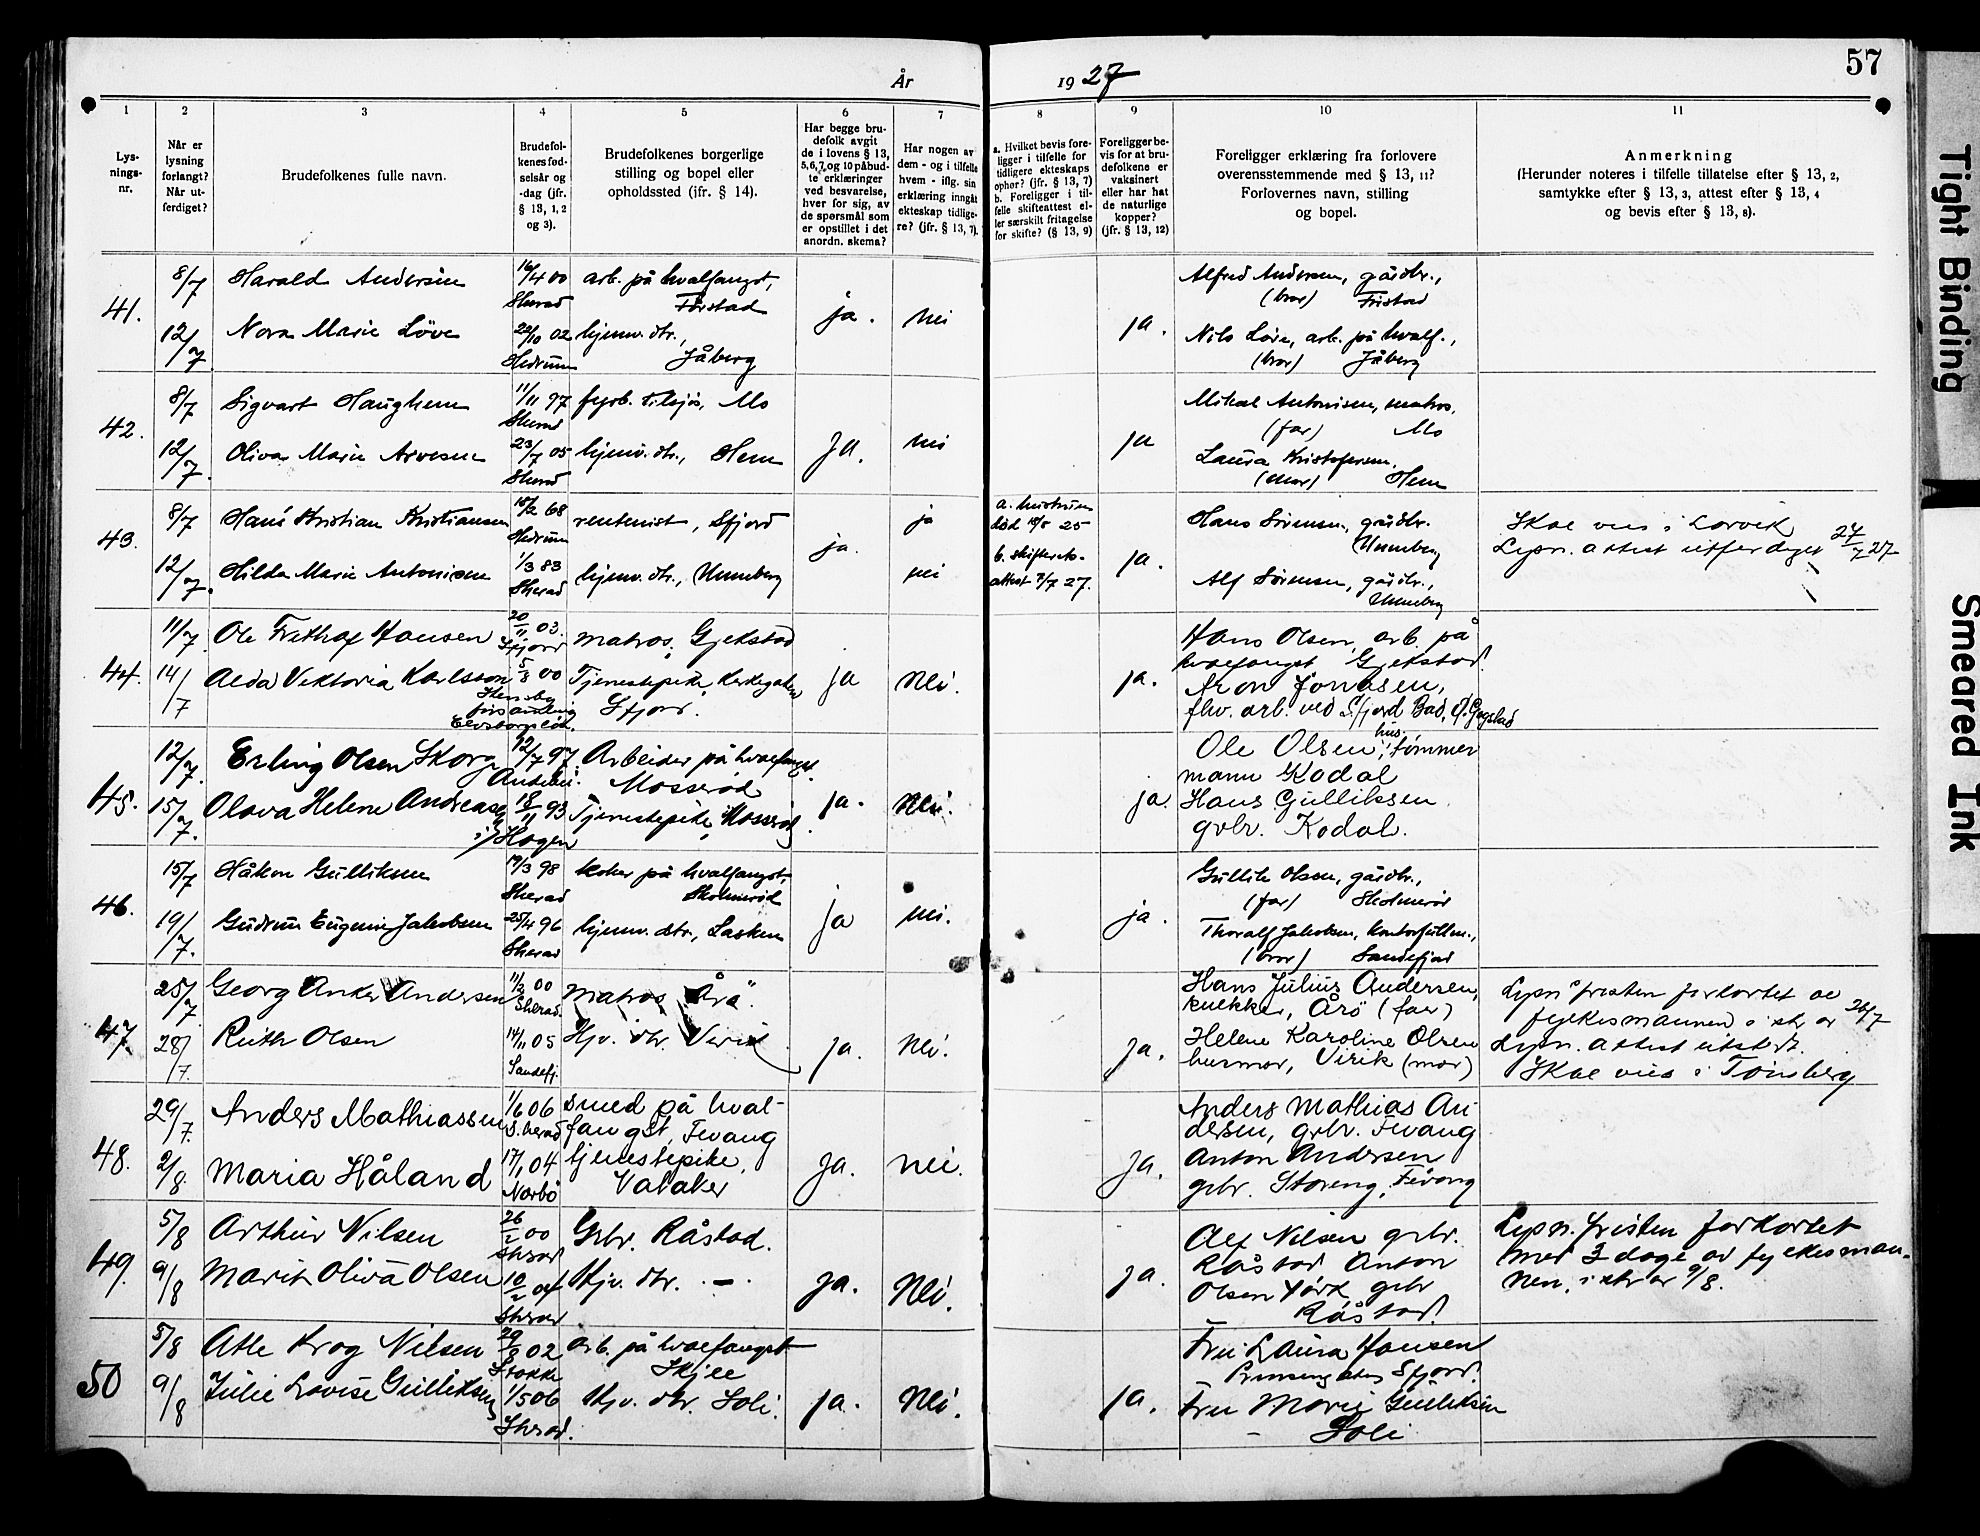 57
År 1927
1 2 3 4 5 6 7 8 9 10 11
Lys-
nings-
nr.
Når er
lysning
forlangt?
Når ut-
ferdiget?
Brudefolkenes fulle navn.
Brudefol-
kenes fød-
selsår og
-dag (jfr.
§ 13, 1, 2
og 3).
Brudefolkenes borgerlige
stilling og bopel eller
opholdssted (ifr. § 14).
Har begge bru-
defolk avgit
de i lovens § 13,
5,6,7, og 10 påbud-
te erklæringer
ved besvarelse,
hver for sig, av
de spørsmål som
er opstillet i det
anordn. skema?
Har nogen av
dem - og i tilfelle
hvem - iflg. sin
erklæring inngått
ekteskap tidlige-
re? (jfr. § 13, 7).
a. Hvilket bevis fore-
ligger i tilfelle for
tidligere ekteskaps
ophør? (jfr. § 13, 7)
b. Foreligger i til-
felle skifteattest el-
ler særskilt fritagelse
for skifte? (§ 13, 9)
Foreligger be-
vis for at bru-
defolkene er
vaksinert
eller har hat
de naturlige
kopper?
(jfr. § 13, 12)
Foreligger erklæring fra forlovere
overensstemmende med § 13, 11?
Forlovernes navn, stilling
og bopel.
Anmerkning
(Herunder noteres i tilfelle tillatelse efter § 13, 2,
samtykke efter § 13, 3, attest efter § 13, 4
og bevis efter § 13, 8).
41.
8/7 Harald Andersen 16/4 00 arb. på hvalfangst, Alfred Andersen, gårdbr.,
Sherad Fristad ja. nei ja. (bror) Fristad
12/7 Nora Marie Löve 22/10 02 hjemv. dtr., Nils Löve, arb. på hvalf.,
Hedrum Jåberg (bror) Jåberg
42.
8/7 Sigvart Haughem 11/11 97 fyrb. tilsjøs, Mo Mikal Antonisen, matros,
Sherad ja. nei ja (far) Mo
12/7 Oliva Marie Arvesen 23/7 05 hjemv. dtr., Hem Laura Kristofersen,
Sherad (mor) Hem
43.
8/7 Hans Kristian Kristiansen 18/2 68 rentenist, Sfjord ja a. hustruen Hans Sörensen, gårdbr. Skal vies i Larvik
Hedrum ja. død 18/5 25 ja. Unneberg Lysn. attest utferdiget 27/7 27
12/7 Hilda Marie Antonisen 1/3 83 hjemv. dtr., Unneberg nei b. skifterets- Alf Sörensen, gårdbr.,
Sherad attest 7/7 27. Unneberg
44.
11/7 Ole Frithof Hansen 20/11 03. matros, Gjekstad Hans Olsen, arb. på
Sfjord hvalfangst Gjekstad.
14/7 Alda Viktoria Karlsson 5/8 00 Tjenestepike, Kirkegaten ja Nei. ja. Aron Jonasen,
församling Sfjord. fhv. arb. ved Sfjord Bad,
Elvsborgs län.
45.
12/7. Erling Olsen Skorg 12/7 97 Arbeider på hvalfangst. Ole Olsen, hus, tømmer
Andebu. Mosserød mann Kodal
15/7. Olava Helene Andreasen 18/11 93 Tjenestepike, Mosserød ja. Nei. ja. Hans Gulliksen
Hogen grbr. Kodal.
46.
15/7 Håkon Gulliksen 19/3 98 koker på hvalfangst, Gullik Olsen, gårdbr.,
Sherad Skolmerød ja nei. ja. (far) Skolmerød
19/7. Gudrun Eugenie Jakobsen 25/4 96 hjemv. dtr., Lasken Thoralf Jakobsen, kontorfullm.,
Sherad (bror) Sandefjord
47.
25/7 Georg Anker Andersen 11/2 00 Matros Årö. Hans Julius Andersen, Lysn. fristen forkortet av
Sherad. snekker, Årö (far) fylkesmannen i skr. av 26/7
28/7. Ruth Olsen 14/11 05 Hjv. dtr. Virik ja. Nei. ja. Helene Karoline Olsen Lysn. attest utstedt.
Sandefj. husmor, Virik (mor) Skal vies i Tönsberg
48.
29/7. Anders Mathiassen 1/6 06 smed på hval- Anders Mathias An-
S.herad fangst, Fevang dersen, grbr. Fevang
2/8. Maria Håland 17/1 04 tjenestepike, ja. nei. ja. Anton Andersen
Narbö Valaker grbr. Storeng, Fevang
49.
5/8 Arthur Nilsen 26/2 00 Grbr. Råstad. Alf Nilsen grbr. Lysn. fristen forkortet
Sherad Råstad Anton med 3 dage av fylkesman-
9/8 Marit Oliva Olsen 10/2 04 Hjv. dtr. - ja. Nei. ja. Olsen York grbr nen, i skr. av 9/8.
Sherad Råstad.
50
5/8 Atle Krog Nilsen 29/8 02 arb. på hvalfangst Fru Laura Hansen
Stokke Skjee Prinsensgaten Sfjord.
9/8 Julie Lovise Gulliksen 1/5 06 Hjv. dtr. Soli. ja. Nei. ja. Fru Marie Gulliksen
Sherad. Soli
Tight Binding
Smeared Ink